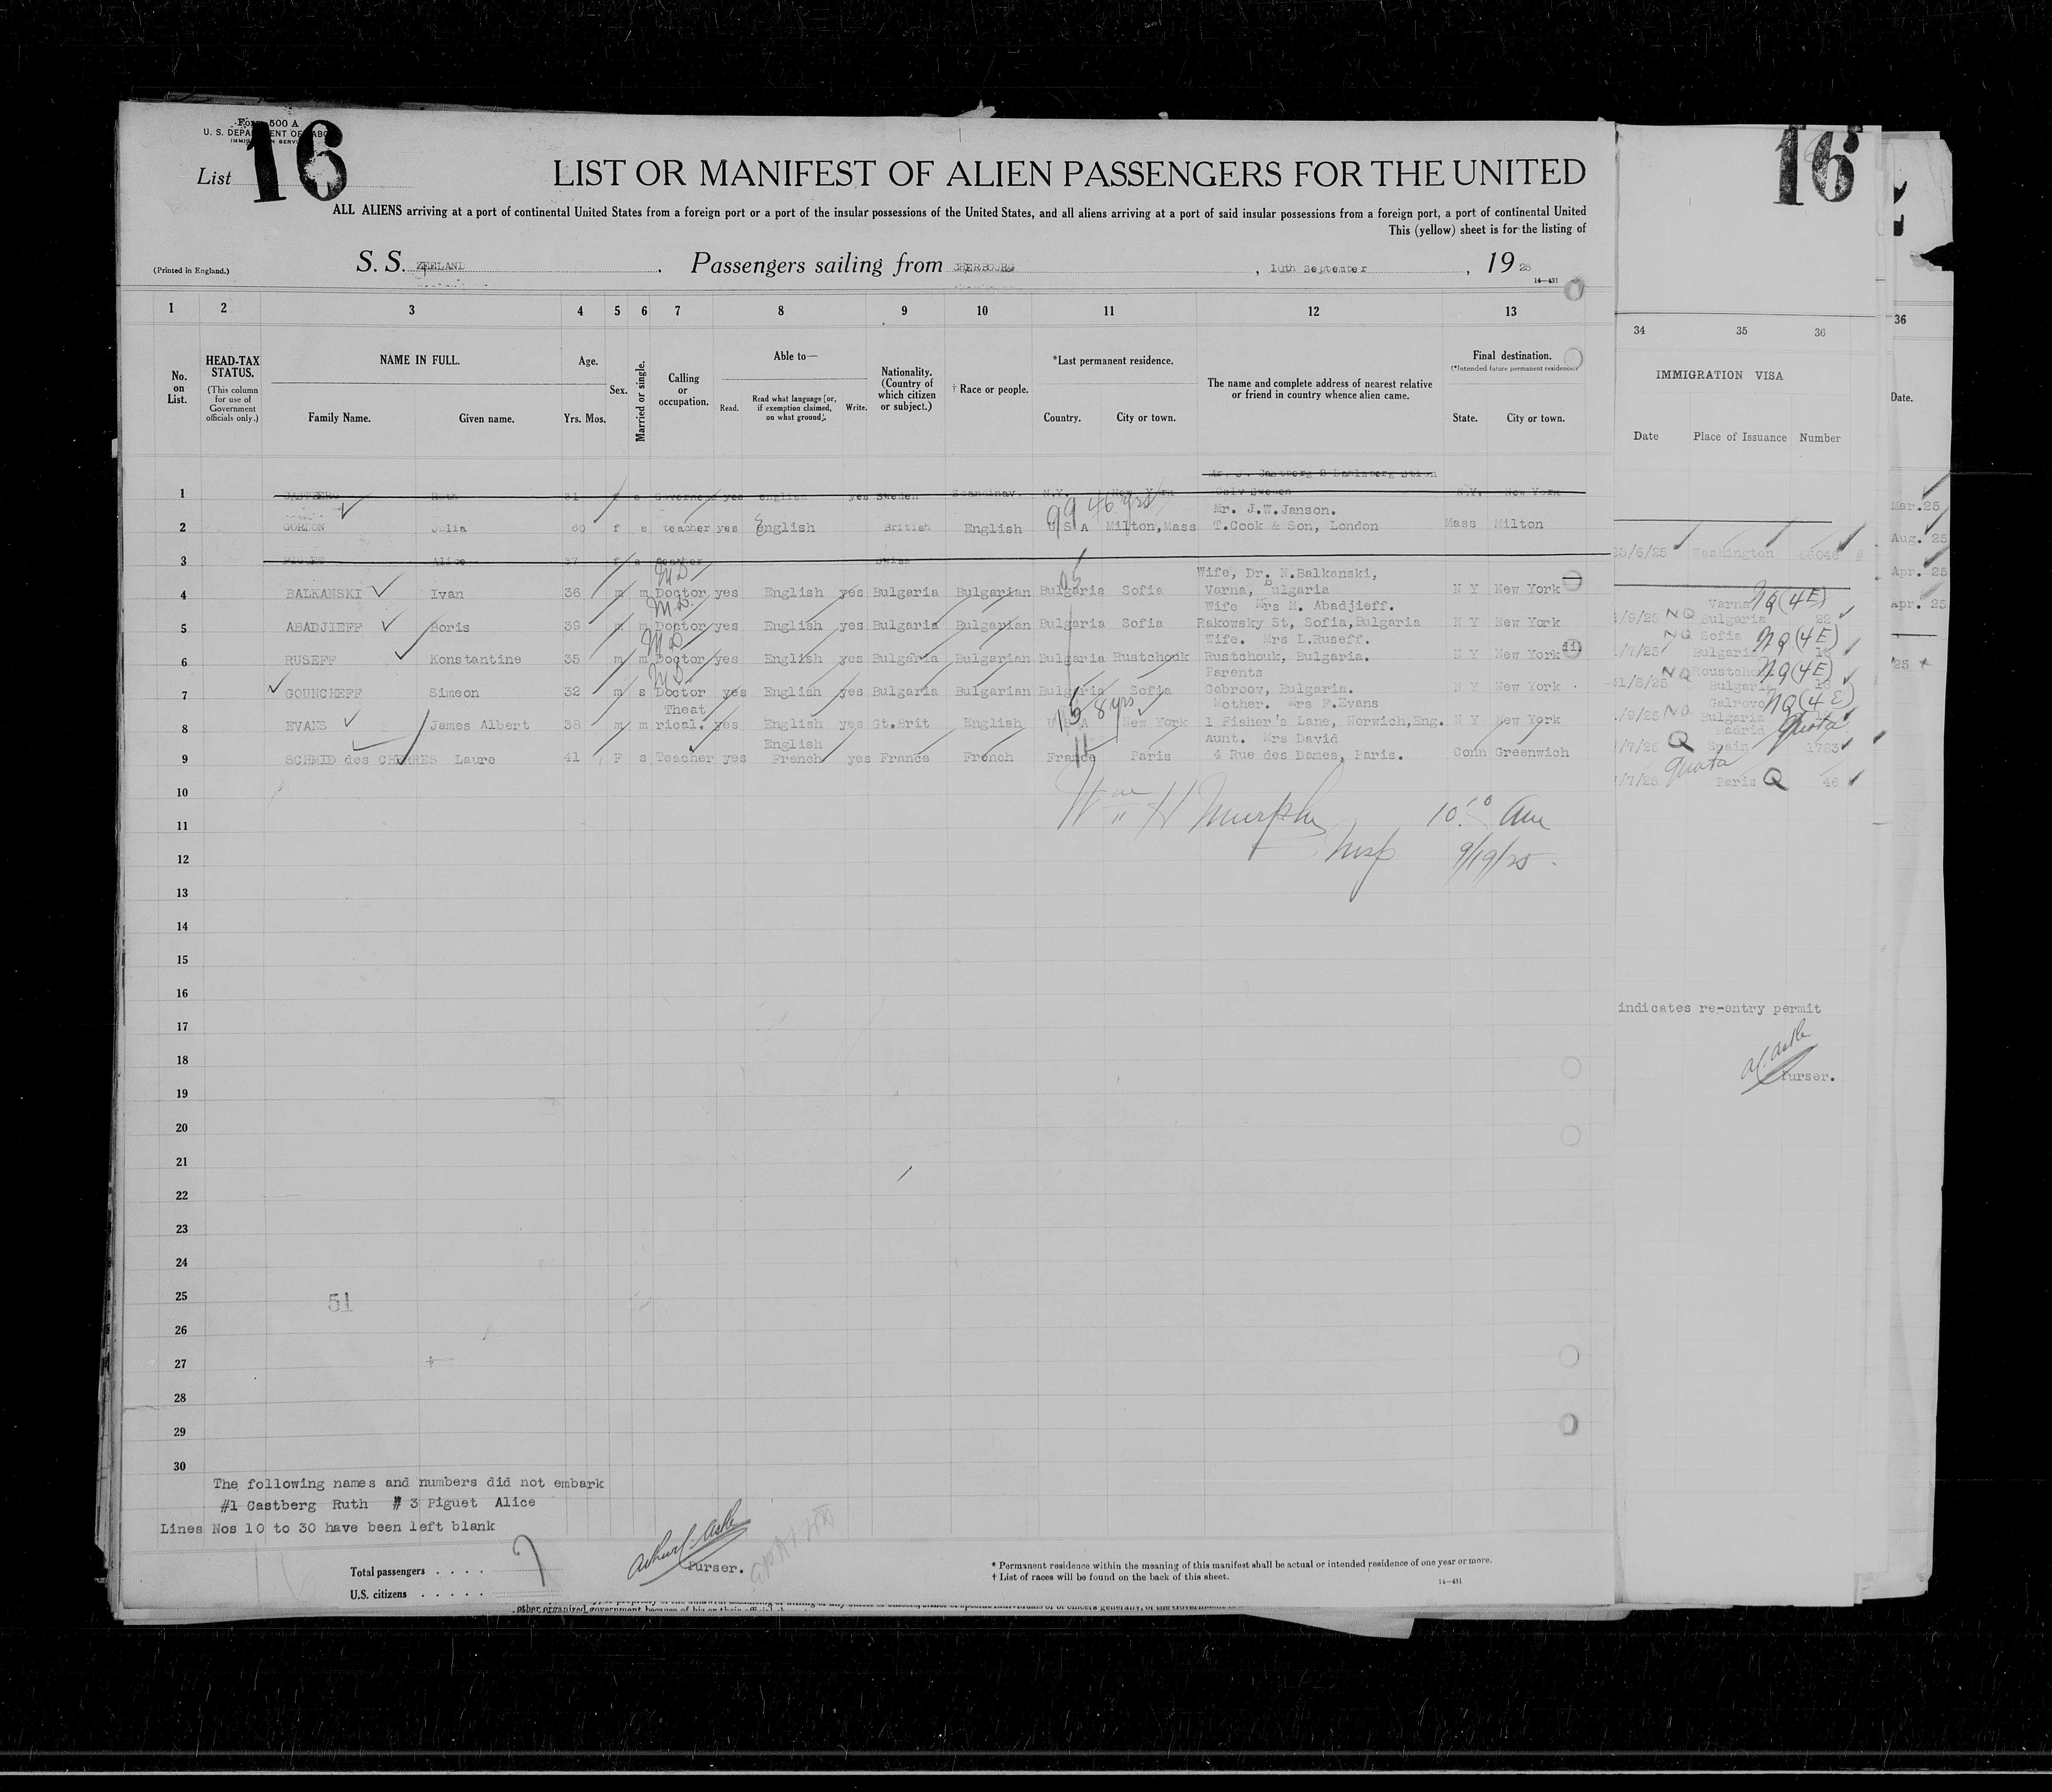 Form 500 A
U. S. DEPARTMENT OF LABOR
IMMIGRATION SERVICE
List 16
LIST OR MANIFEST OF ALIEN PASSENGERS FOR THE UNITED
ALL ALIENS arriving at a port of continental United States from a foreign port or a port of the insular possessions of the United States, and all aliens arriving at a port of said insular possessions from a foreign port, a port of continental United
This (yellow) sheet is for the listing of
(Printed in England.)
S. S. ZEELAND. Passengers sailing from CHERBOURG, 10th September, 1925
14—431
1 2 3 4 5 6 7 8 9 10 11 12 13
No. on List.
HEAD-TAX STATUS. (This column for use of Government officials only.)
NAME IN FULL. Family Name. Given name.
Age. Yrs. Mos.
Sex.
Married or single.
Calling or occupation.
Able to— Read. Read what language [or, if exemption claimed, on what ground]. Write.
Nationality. (Country of which citizen or subject.)
† Race or people.
*Last permanent residence. Country. City or town.
The name and complete address of nearest relative or friend in country whence alien came.
Final destination. (*Intended future permanent residence.) State. City or town.
1 CASTBERG Ruth 31 f s Governess yes english yes Sweden Scandinav. N.Y. New York Sweden N.Y. New York
99 46 yrs
Mr. J.W.Janson.
2 GORDON Julia 60 f s teacher yes English British English U S A Milton,Mass T.Cook & Son, London Mass Milton
3 PIGUET Alice 37 f s teacher Swiss
M D Wife, Dr. N.Balkanski,
4 BALKANSKI Ivan 36 m m Doctor yes English yes Bulgaria Bulgarian Bulgaria Sofia Varna, Bulgaria N Y New York
M D. Wife Mrs M. Abadjieff.
5 ABADJIEFF Boris 39 m m Doctor yes English yes Bulgaria Bulgarian Bulgaria Sofia Rakowsky St, Sofia,Bulgaria N Y New York
M D Wife. Mrs L.Ruseff.
6 RUSEFF Konstantine 35 m m Doctor yes English yes Bulgaria Bulgarian Bulgaria Rustchouk Rustchouk, Bulgaria. N Y New York
M D Parents
7 GOUNCHEFF Simeon 32 m s Doctor yes English yes Bulgaria Bulgarian Bulgaria Sofia Gabroov, Bulgaria. N Y New York
Theat 8 yrs Mother. Mrs F.Evans
8 EVANS James Albert 38 m m rical. yes English yes Gt.Brit English U S A New York 1 Fisher's Lane, Norwich,Eng. N Y New York
English Aunt. Mrs David
9 SCHMID des CHERRES Laure 41 F s Teacher yes French yes France French France Paris 4 Rue des Dames, Paris. Conn Greenwich
10
11
Wm H Murphy 10.10 am
12
Insp 9/19/25
13
14
15
16
17
18
19
20
21
22
23
24
25
51
26
27
28
29
30
The following names and numbers did not embark
#1 Castberg Ruth # 3 Piguet Alice
Lines Nos 10 to 30 have been left blank
Total passengers . . . . 7
U.S. citizens . . . . .
Purser.
* Permanent residence within the meaning of this manifest shall be actual or intended residence of one year or more.
† List of races will be found on the back of this sheet.
14—431
16
34 35 36
IMMIGRATION VISA
Date Place of Issuance Number
25/6/25 Washington #
Varna NQ (4E)
/9/25 NQ Bulgaria 22
NQ Sofia NQ (4E)
/7/25 Bulgaria
NQ Roustchouk NQ (4E)
31/8/25 Bulgaria
NQ (4E)
/9/25 NQ Bulgaria
Madrid Quota
/7/25 Q Spain 1783
Quota
/7/25 Paris Q 46
indicates re-entry permit
Purser.
36
Date.
Mar.25
Aug. 25
Apr. 25
Apr. 25
25